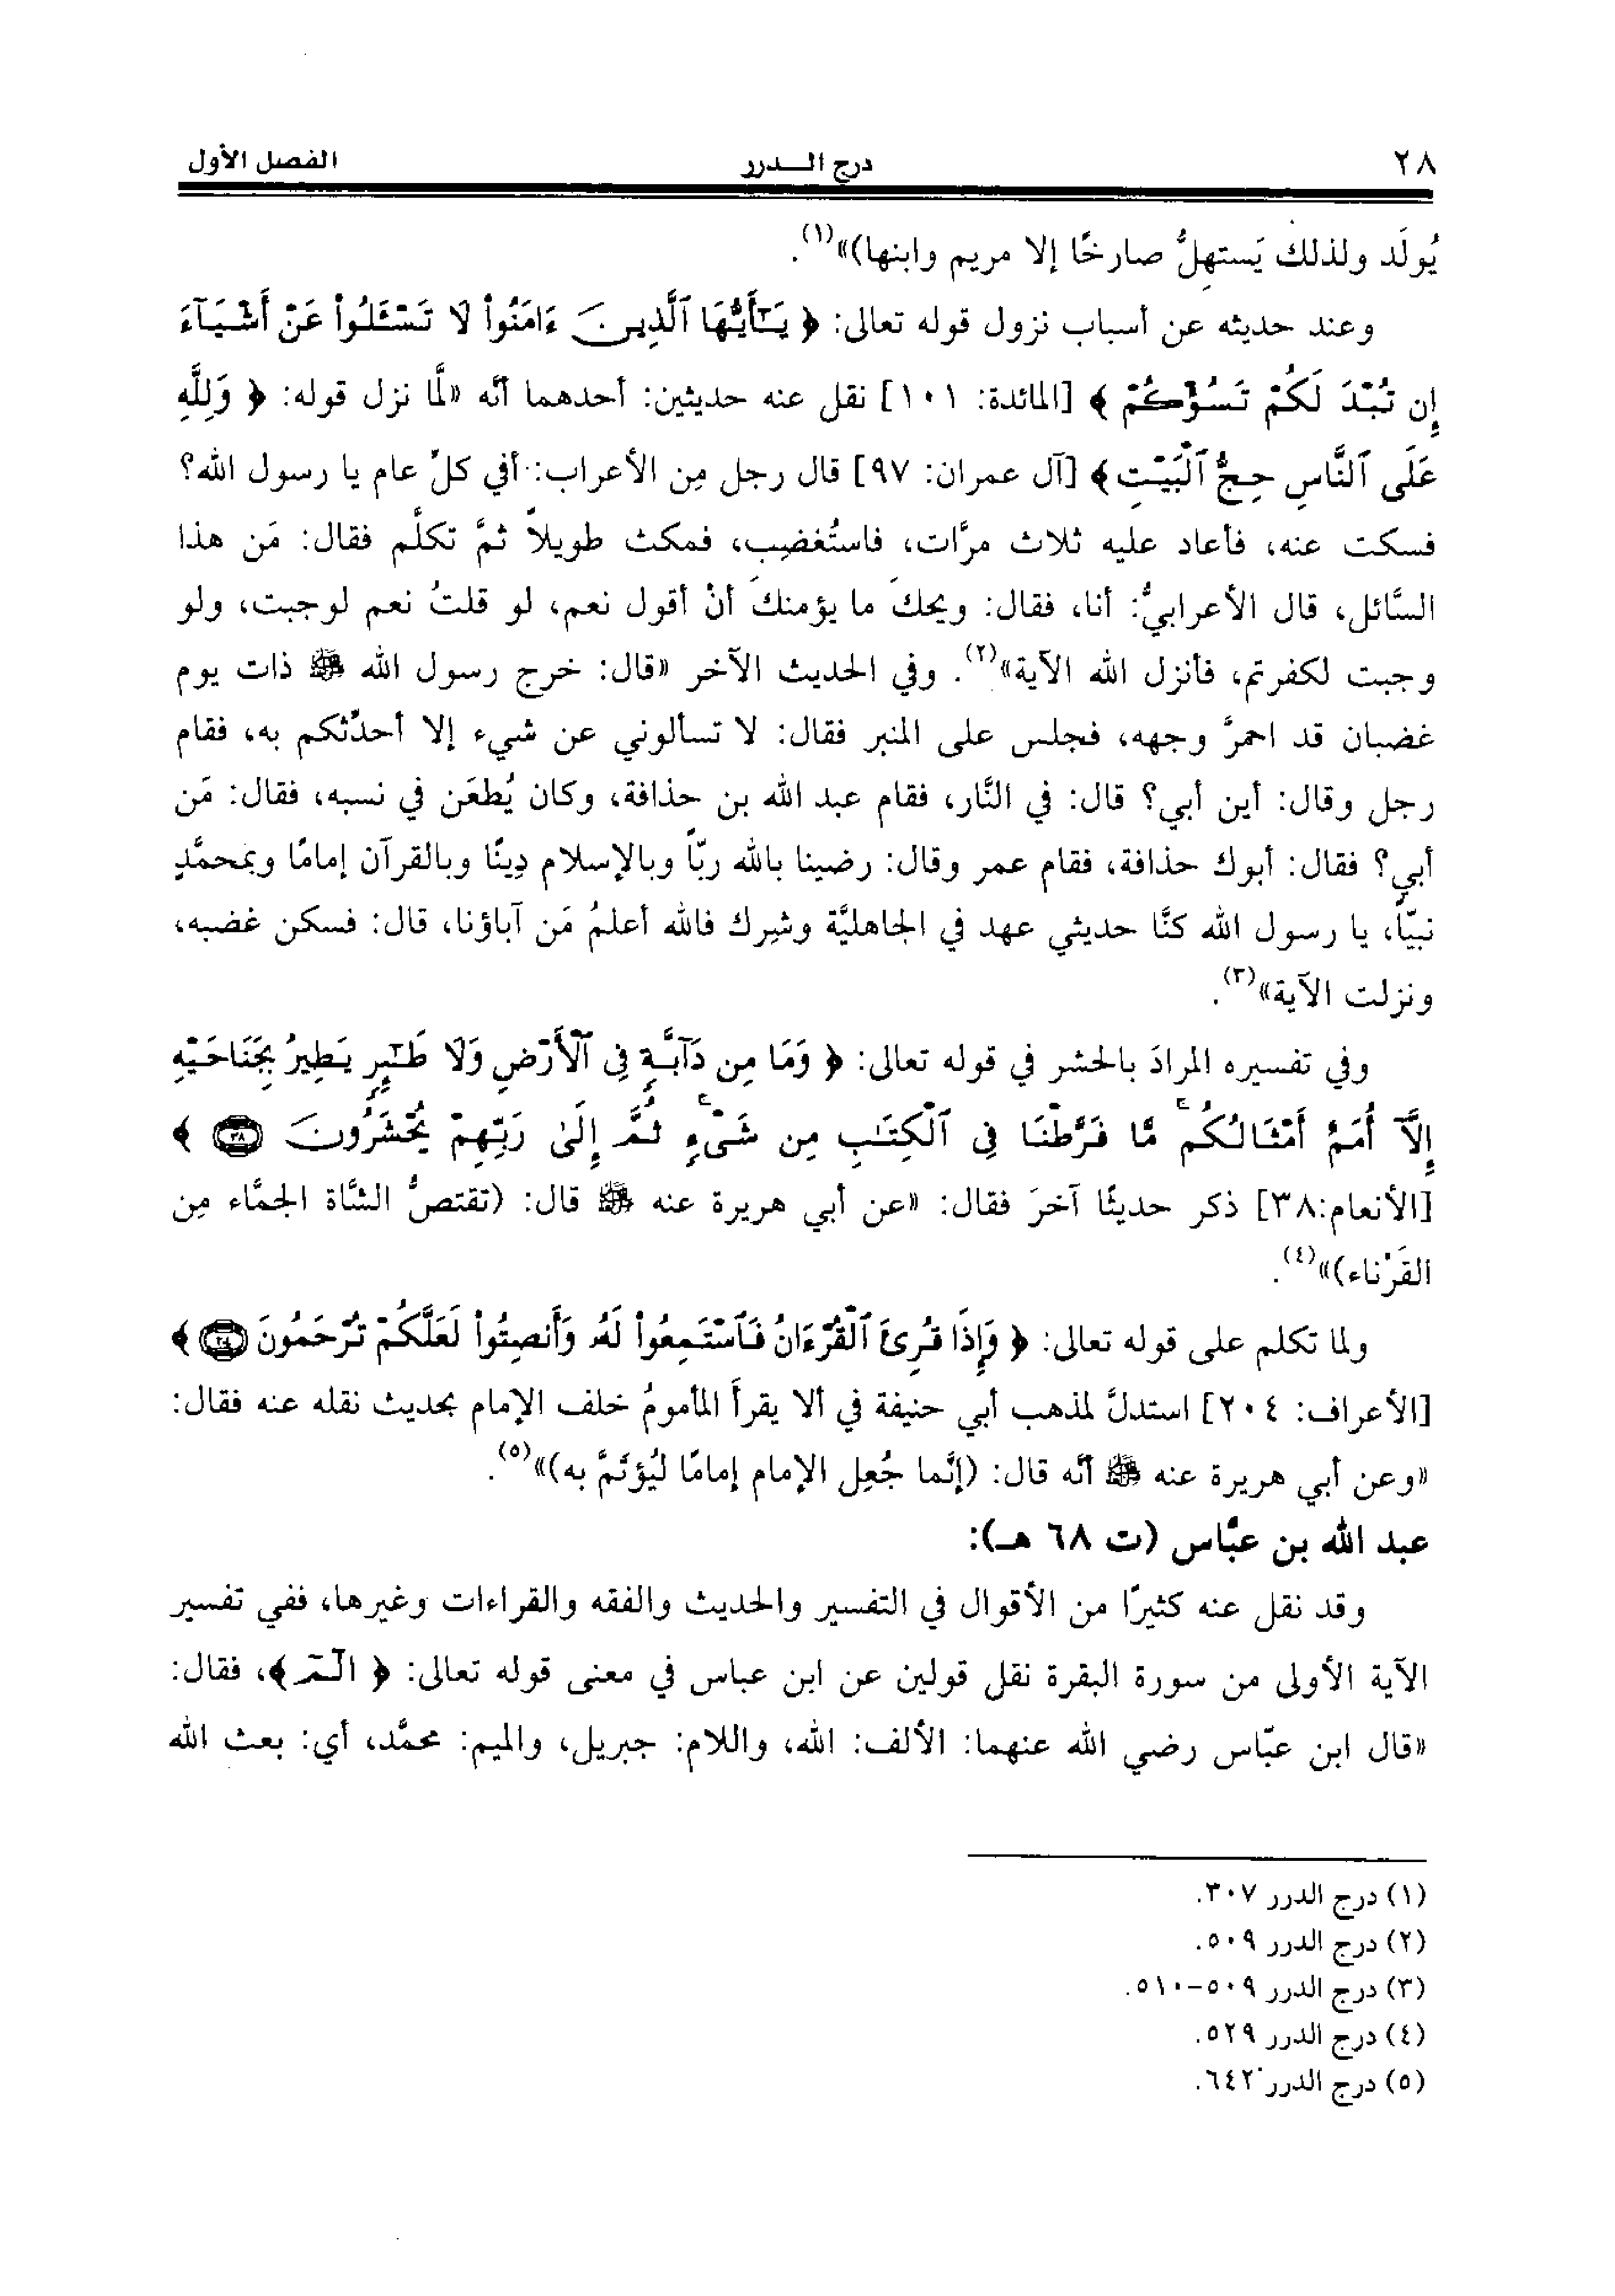 ٢٨ درج الـــدرر الفصل الأول
يُولَد ولذلك يَستهِلُّ صارخًا إلا مريم وابنها)»(١).
وعند حديثه عن أسباب نزول قوله تعالى: ﴿ يَـٰٓأَيُّهَا ٱلَّذِينَ ءَامَنُوا۟ لَا تَسْـَٔلُوا۟ عَنْ أَشْيَآءَ
إِن تُبْدَ لَكُمْ تَسُؤْكُمْ ﴾ [المائدة: ١٠١] نقل عنه حديثين: أحدهما أنّه «لَّمَا نزل قوله: ﴿ وَلِلَّهِ
عَلَى ٱلنَّاسِ حِجُّ ٱلْبَيْتِ﴾ [آل عمران: ٩٧] قال رجل مِن الأعراب: أفي كلّ عام يا رسول الله؟
فسكت عنه، فأعاد عليه ثلاث مرَّات، فاستُغضِب، فمكث طويلاً ثمَّ تكلَّم فقال: مَن هذا
السَّائل، قال الأعرابيُّ: أنا، فقال: ويحكَ ما يؤمنكَ أنْ أقول نعم، لو قلتُ نعم لوجبت، ولو
وجبت لكفرتم، فأنزل الله الآية»(٢). وفي الحديث الآخر «قال: خرج رسول الله ﷺ ذات يوم
غضبان قد احمرَّ وجهه، فجلس على المنبر فقال: لا تسألوني عن شيء إلا أحدّثكم به، فقام
رجل وقال: أين أبي؟ قال: في النَّار، فقام عبد الله بن حذافة، وكان يُطعَن في نسبه، فقال: مَن
أبي؟ فقال: أبوك حذافة، فقام عمر وقال: رضينا بالله ربّاً وبالإسلام دِينًا وبالقرآن إمامًا وبمحمَّدٍ
نبيّاً، يا رسول الله كنَّا حديثي عهد في الجاهليَّة وشِرك فالله أعلمُ مَن آباؤنا، قال: فسكن غضبه،
ونزلت الآية»(٣).
وفي تفسيره المرادَ بالحشر في قوله تعالى: ﴿ وَمَا مِن دَآبَّةٍ فِى ٱلْأَرْضِ وَلَا طَـٰٓئِرٍ يَطِيرُ بِجَنَاحَيْهِ
إِلَّآ أُمَمٌ أَمْثَالُكُم ۚ مَّا فَرَّطْنَا فِى ٱلْكِتَـٰبِ مِن شَىْءٍ ۚ ثُمَّ إِلَىٰ رَبِّهِمْ يُحْشَرُونَ ٣٨ ﴾
[الأنعام:٣٨] ذكر حديثًا آخرَ فقال: «عن أبي هريرة عنه ﷺ قال: (تقتصُّ الشَّاة الجمَّاء مِن
القَرْناء)»(٤).
ولما تكلم على قوله تعالى: ﴿ وَإِذَا قُرِئَ ٱلْقُرْءَانُ فَٱسْتَمِعُوا۟ لَهُۥ وَأَنصِتُوا۟ لَعَلَّكُمْ تُرْحَمُونَ ٢٠٤ ﴾
[الأعراف: ٢٠٤] استدلَّ لمذهب أبي حنيفة في ألا يقرأَ المأمومُ خلف الإمام بحديث نقله عنه فقال:
«وعن أبي هريرة عنه ﷺ أنّه قال: (إنَّما جُعِل الإمام إمامًا ليُؤتَمَّ به)»(٥).
عبد الله بن عبّاس (ت ٦٨ هـ):
وقد نقل عنه كثيرًا من الأقوال في التفسير والحديث والفقه والقراءات وغيرها، ففي تفسير
الآية الأولى من سورة البقرة نقل قولين عن ابن عباس في معنى قوله تعالى: ﴿ الٓمٓ ﴾، فقال:
«قال ابن عبّاس رضي الله عنهما: الألف: الله، واللام: جبريل، والميم: محمَّد، أي: بعث الله
(١) درج الدرر ٣٠٧.
(٢) درج الدرر ٥٠٩.
(٣) درج الدرر ٥٠٩-٥١٠.
(٤) درج الدرر ٥٢٩.
(٥) درج الدرر ٦٤٢.